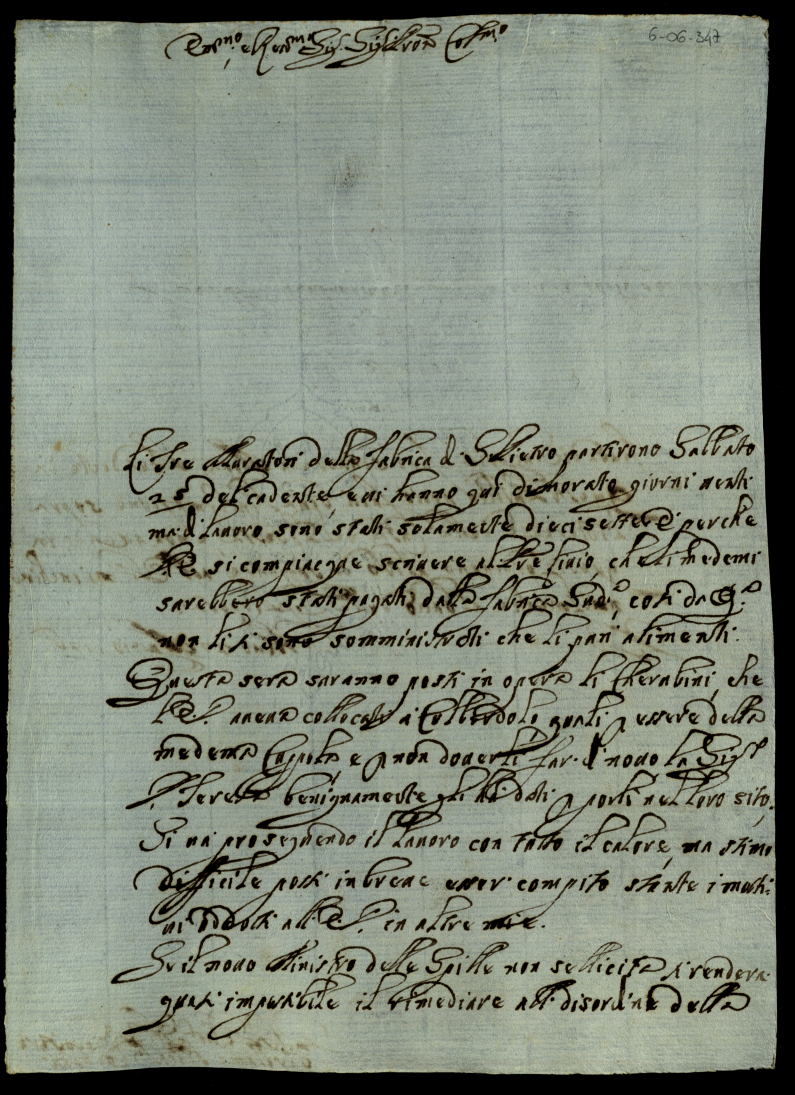 6-06-347
Em.mo e Rev.mo Sig. Sig. Pron Col.mo
Li tre Muratori della fabrica di S. Pietro partirono Sabbato
25 del cadente e vi hanno qui dimorato giorni venti
ma di lavoro sono stati solamente dieci sette e perche
V.E. si compiacque scrivere all're che li medemi
sarebbero stati pagati dalla fabrica Sud.a, così da
non li si sono somministrati che li pari alimenti.
Questa sera saranno posti in opera li Cherubini, che
V.E. aveva collocati a quali p essere della
medema Cuppola e p non doverli far di novo la Sig.ra
P. Teresa benignamente gli ha dati p porli nel loro sito.
Si va proseguendo il lavoro con tutto il calore, ma stimo
difficile possi in breve esser compito stante i moti-
vi addotti all'E.V. in altre mie.
Se il novo Ministro delle Spille non sollicita si renderà
quasi impossibile il rimediare alli disordine della